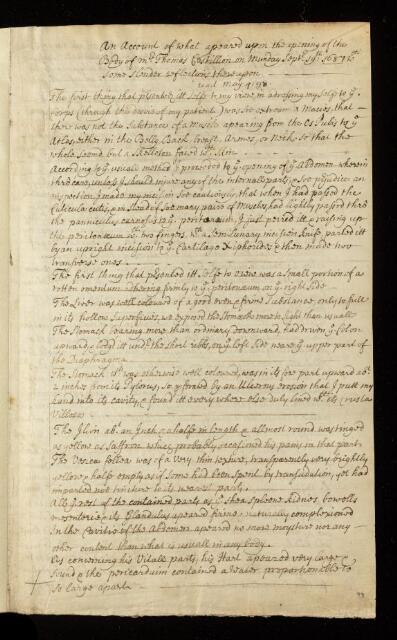 An Account of what apeared upon the opening of the
Body of Mr Thomas on Munday Septr 19th 1687 wth
Some Slender reflections thereupon
read May 4: 98
The first thing that presented itt Selfe to my view in adressing my Selfe to ye
corps (through the of my patient) was so extream a Macies, that
there was not the Substance of a Muscle apearing from the Os Pubis to ye
Atlas, either in the Belly, Back, Breast, Armes, or Neck, So that the
whole Seemd but a Skelleton faced wth Skin.
According to ye usuall method I proceeded to ye opening of ye Abdomen wherein
least I should injure any of the internall parts, & so prejudice an
inspection, I made my incision So cautiously, that when I had passed the
Cuticula cutis, & an of Muscles, & had Slightly passed thro
the panniculus carnosus to ye peritonaeum, I just peircd itt, & rayseing up
the peritonaeum wth two fingers, wth a Semilunary incision knife parted itt
by an upright incision to ye Cartilago Xiphoides & then made two
tranverse ones.
The first thing that presented itt Selfe to view was a Small portion of a
rotten omentum adhering firmly to ye peritonaeum on ye right Side
The Liver was well coloured of a good even & firm Substance, only to full
in its hollow Superficies, wch exposd the Stomach more to Sight than usuall
The Stomach bearing more than ordinary downward, had drove ye Colon
upwards, & lodgd itt undr the Short ribbs, on ye left Side neare ye upper part of
the Diaphragma.
The Stomach wch was otherwise well coloured, was in its fore part upward abt
2 inches from its Pylorus, So prforated by an Ulcerous erosion that I putt my
hand into its cavity, & found itt every where else duly lined wth its crusta
Villosa.
The Ilion abt an Inch & a halfe in length & allmost round was tinged
as yellow as Saffron which probably occasioned his pains in that part.
The Vesica fellea was of a Very thin texture, transparently very brightly
yellow & halfe empty as if Some had been Spent by transudation, yet had
imparted noe tincture to its nearest parts.
All ye rest of the contained parts as ye Spleene Kidnes bowells
mesenterie & its Glandules apeared firm & naturally complexioned
In the Cavitie of the Abdomen apeared no more moisture nor any
other content than what is usuall in any body.
As concerning his Vitale parts, his Hart apeared very large &
Sound & the pericardium contained a water proportionable to
So large a part